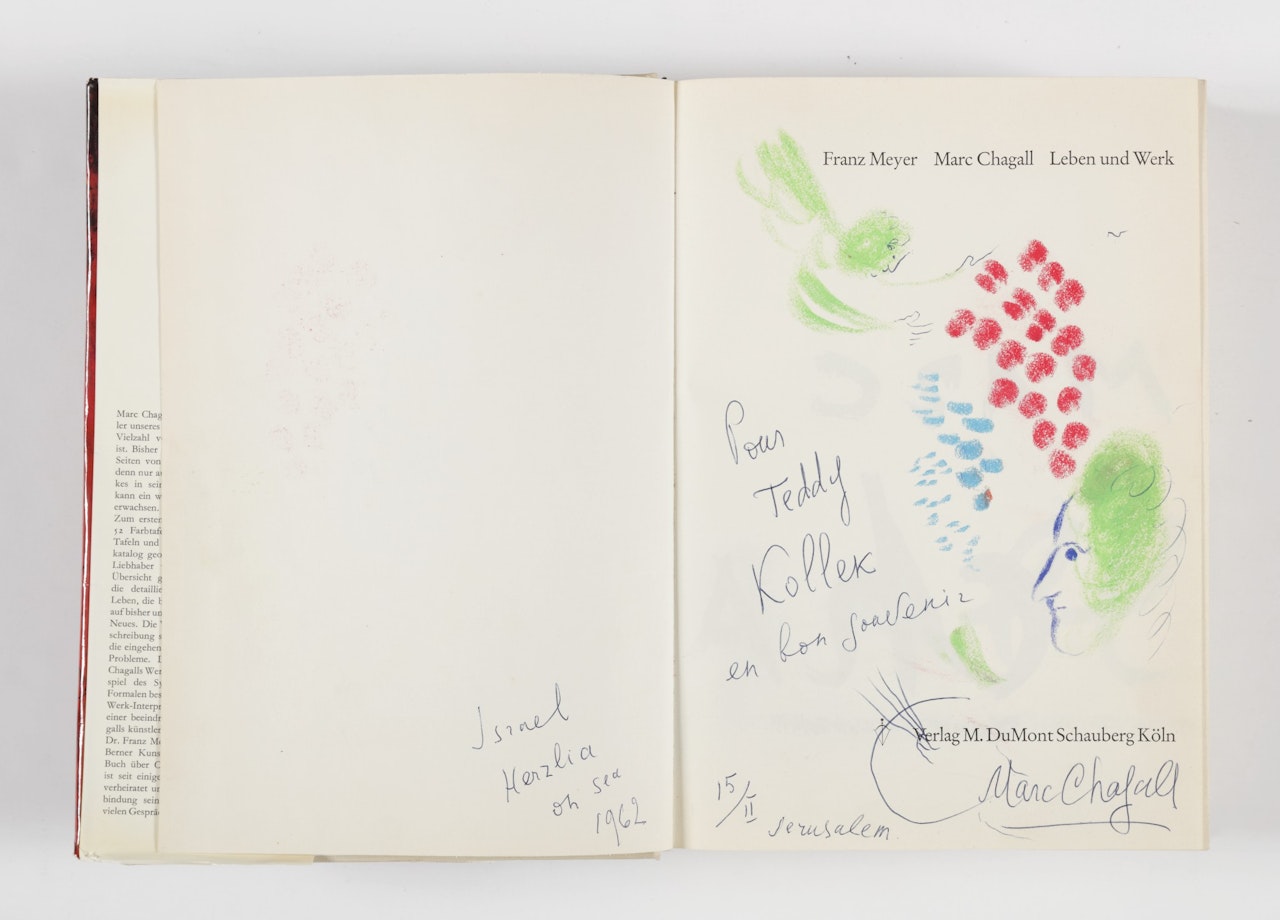 Marc Chag
ler unseres
Vielzahl
ist. Bisher
Seiten von
denn nur
kes in sei
kann ein
erwachsen.
Zum erste
52 Farbtaf
Tafeln und
katalog geo
Liebhaber
Übersicht
die detaillie
Leben, die
auf bisher un
Neues. Die
schreibung
die eingehen
Probleme.
Chagalls Wer
spiel des Sy
Formalen bes
Werk-Interpr
einer beeindr
galls künstler
Dr. Franz Me
Berner Kuns
Buch über C
ist seit einige
verheiratet un
bindung sein
vielen Gespr
Israel
Herzlia
on sea
1962
Franz Meyer Marc Chagall Leben und Werk
Pour
Teddy
Kollek
en bon souvenir
Verlag M. DuMont Schauberg Köln
Marc Chagall
15/II Jerusalem